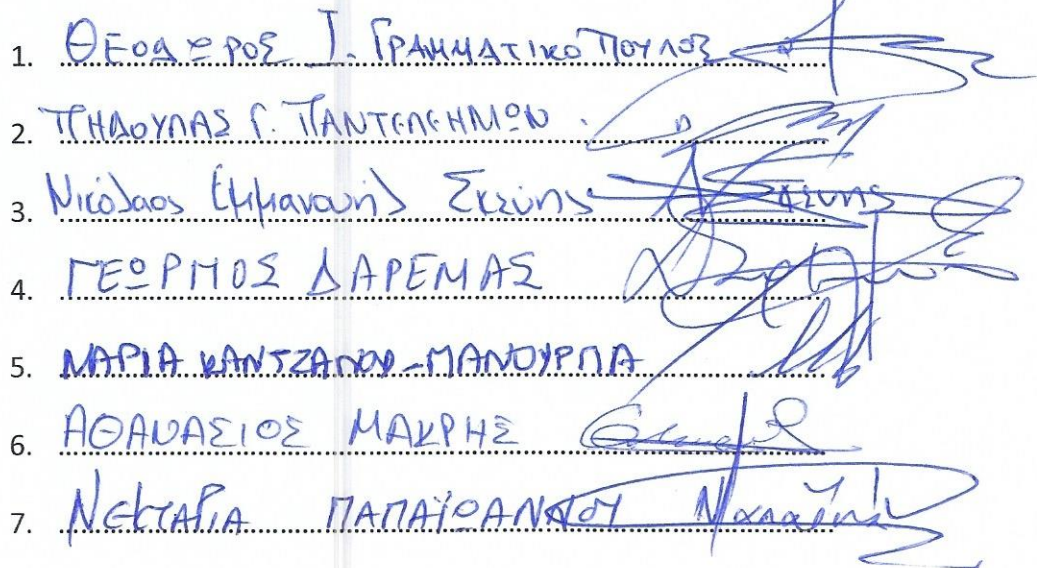 1. ΘΕΟΔΩΡΟΣ Ι. ΓΡΑΜΜΑΤΙΚΟΠΟΥΛΟΣ
2. ΠΗΔΟΥΛΑΣ Γ. ΠΑΝΤΕΛΕΗΜΩΝ
3. Νικόλαος Εμμανουήλ Σκευής
4. ΓΕΩΡΓΙΟΣ ΔΑΡΕΜΑΣ
5. ΜΑΡΙΑ
6. ΑΘΑΝΑΣΙΟΣ ΜΑΚΡΗΣ
7. ΝΕΚΤΑΡΙΑ ΠΑΠΑΪΩΑΝΝΟΥ